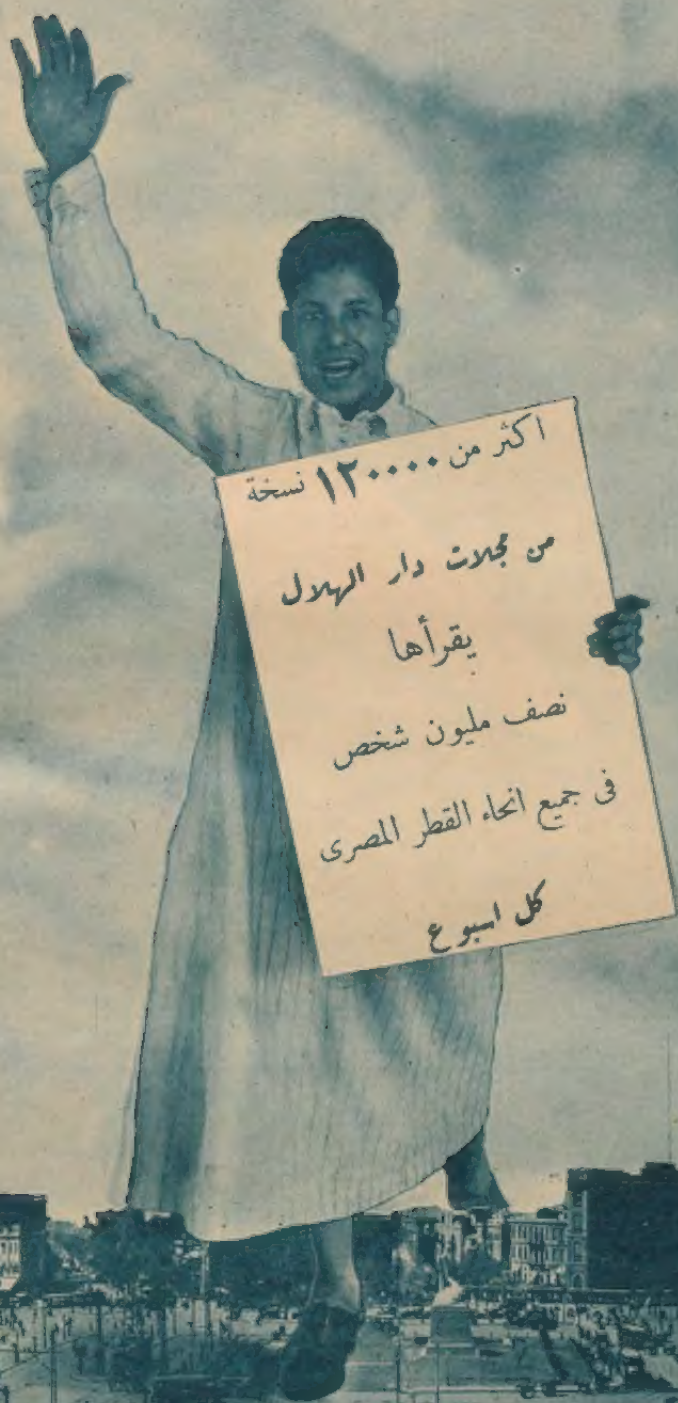 اكثر من ١٢٠٠٠٠ نسخة
من مجلات دار الهلال
يقرأها
نصف مليون شخص
فى جميع انحاء القطر المصرى
كل اسبوع